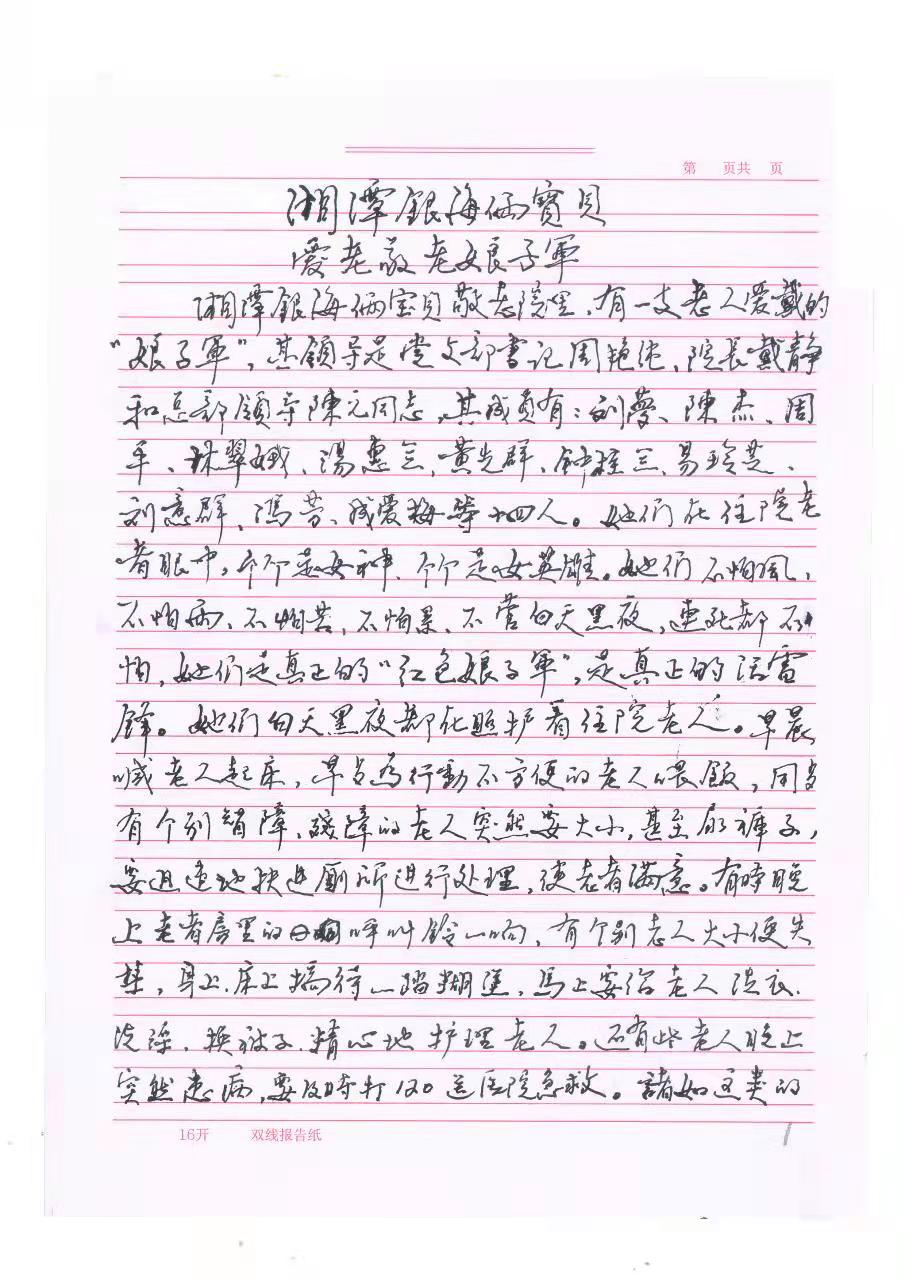 第 页共 页
湘潭銀海俩寶貝
愛老敬老娘子軍
湘潭銀海俩宝貝敬老院里，有一支老人爱戴的
“娘子軍”，其領导是党支部書记周艳纯、院長戴静
和总部領导陳元同志，其成員有：刘夢、陳杰、周
平、珠翠娥、湯惠兰、黄先群、鈡桂兰、易玲芝、
刘意群、馮芳、戚爱梅等十四人。她们在住院老
者眼中，个个是女神、个个是女英雄。她们不怕風、
不怕雨、不怕苦，不怕累、不管白天黑夜，連死都不
怕，她们是真正的“红色娘子軍”，是真正的活雷
锋。她们白天黑夜都在照护着住院老人。早晨
喊老人起床，早占為行動不方便的老人喂飯，同时
有个别智障、残障的老人突然要大小，甚至尿裤子，
要迅速地扶进厕所進行处理，使老者满意。有時晚
上老者房里的呼叫鈴一响，有个别老人大小便失
禁，身上、床上搞得一踏糊塗，馬上要给老人洗衣、
洗澡、换被子，精心地护理老人。还有些老人晚上
突然患病，要及時打120送医院急救。諸如这类的
16开 双线报告纸
1